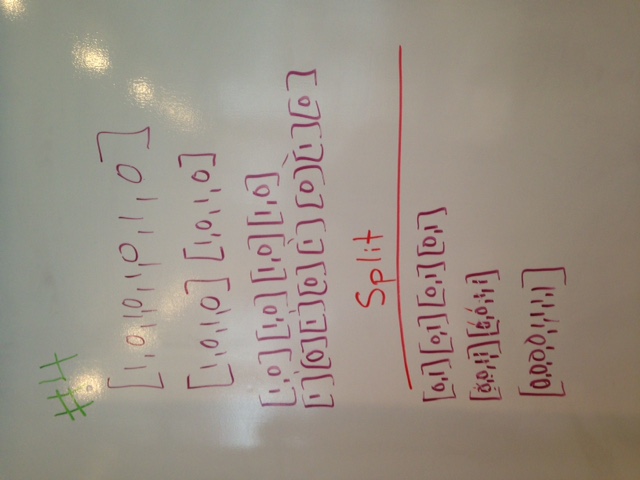 #4
[1,0,1,0,1,0,1,0]
[1,0,1,0] [1,0,1,0]
[1,0] [1,0] [1,0] [1,0]
[1] [0] [1] [0] [1] [0] [1] [0]
Split
[0,1] [0,1] [0,1] [0,1]
[0,0,1,1] [0,0,1,1]
[0,0,0,0,1,1,1,1]